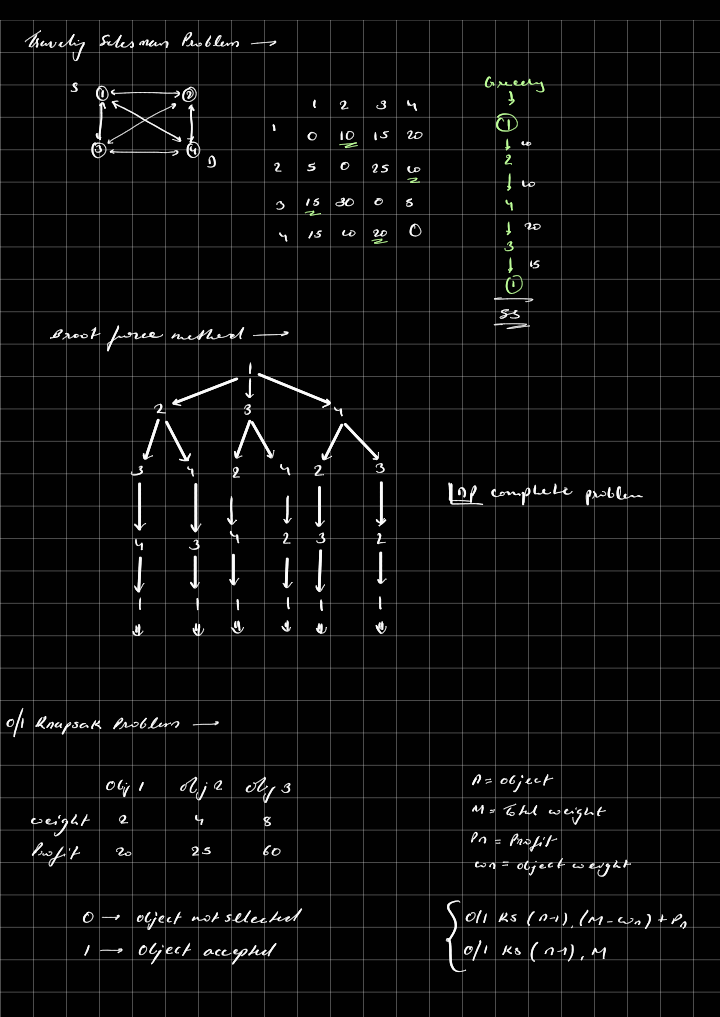 Travelig Salesman Problem →
S
1 2
3 4
D
1 2 3 4
1 0 10 15 20
2 5 0 25 10
3 15 30 0 5
4 15 10 20 0
Greedy
1
10
2
10
4
20
3
15
1
55
Broot force method →
1
2 3 4
3 4 2 4 2 3
4 3 4 2 3 2
1 1 1 1 1 1
NP complete problem
0/1 Knapsak Problem →
Obj 1 obj 2 obj 3
weight 2 4 8
Profit 20 25 60
0 → object not selected
1 → Object accepted
n = object
M = Total weight
Pn = Profit
wn = object weight
0/1 KS (n-1), (M-wn) + Pn
0/1 KS (n-1), M